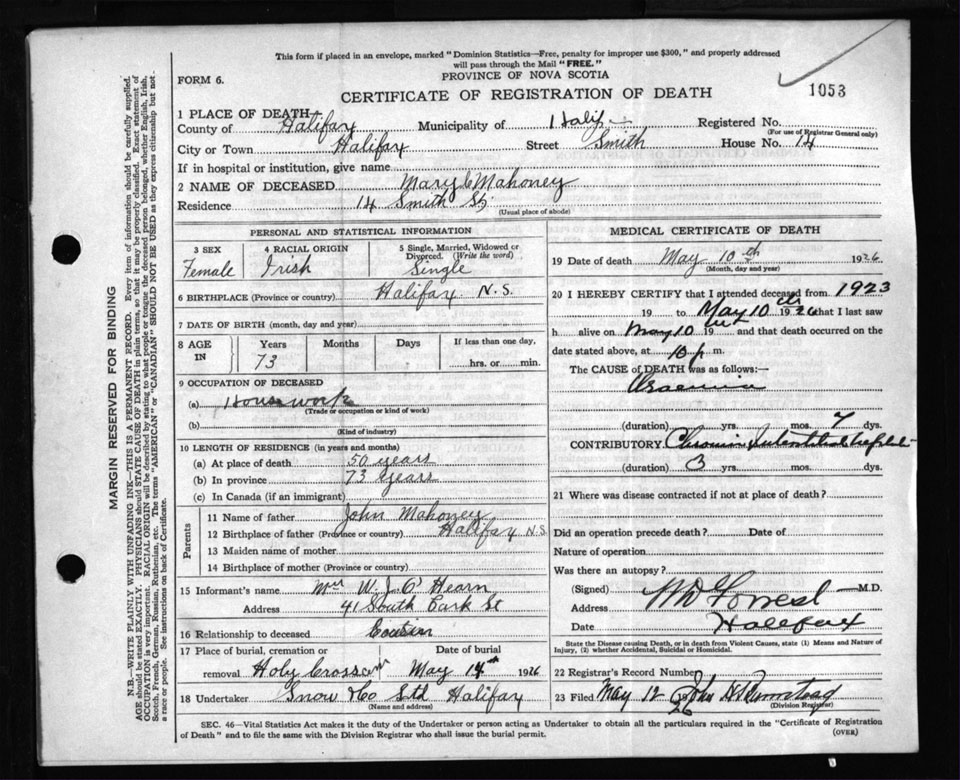 This form if placed in an envelope, marked "Dominion Statistics—Free, penalty for improper use $300," and properly addressed
will pass through the Mail "FREE."
FORM 6.
PROVINCE OF NOVA SCOTIA
CERTIFICATE OF REGISTRATION OF DEATH
1053
1 PLACE OF DEATH—
County of Halifax Municipality of Registered No.
(For use of Registrar General only)
City or Town Halifax Street Smith House No. 14
If in hospital or institution, give name
2 NAME OF DECEASED Mary C Mahoney
Residence 14 Smith St
(Usual place of abode)
PERSONAL AND STATISTICAL INFORMATION
3 SEX 4 RACIAL ORIGIN 5 Single, Married, Widowed or
Divorced. (Write the word)
Female Irish Single
6 BIRTHPLACE (Province or country) Halifax N.S.
7 DATE OF BIRTH (month, day and year)
8 AGE IN Years Months Days If less than one day,
73 hrs. or min.
9 OCCUPATION OF DECEASED
(a) House work
(Trade or occupation or kind of work)
(b)
(Kind of industry)
10 LENGTH OF RESIDENCE (in years and months)
(a) At place of death 50 years
(b) In province 73 years
(c) In Canada (if an immigrant)
Parents
11 Name of father John Mahoney
12 Birthplace of father (Province or country) Halifax N.S
13 Maiden name of mother
14 Birthplace of mother (Province or country)
15 Informant's name Mrs W. J. O'Hearn
Address 41 South Park St
16 Relationship to deceased Cousin
17 Place of burial, cremation or Date of burial
removal Holy Cross May 14th 1926
18 Undertaker Snow & Co Ltd Halifax
(Name and address)
MEDICAL CERTIFICATE OF DEATH
19 Date of death May 10th 1926
(Month, day and year)
20 I HEREBY CERTIFY that I attended deceased from 1923
19 to May 10th 1926 that I last saw
h alive on May 10 19 and that death occurred on
date stated above, at 10 p m.
The CAUSE of DEATH was as follows:—
Uraemia
(duration) yrs. mos. 7 dys.
CONTRIBUTORY. Chronic Interstitial
(duration) 3 yrs. mos. dys.
21 Where was disease contracted if not at place of death?
Did an operation precede death? Date of
Nature of operation
Was there an autopsy?
(Signed) Forrest M.D.
Address
Date Halifax
State the Disease causing Death, or in death from Violent Causes, state (1) Means and Nature of
Injury, (2) whether Accidental, Suicidal or Homicidal.
22 Registrar's Record Number
23 Filed May 12 26 John
(Division Registrar)
SEC. 46—Vital Statistics Act makes it the duty of the Undertaker or person acting as Undertaker to obtain all the particulars required in the "Certificate of Registration
of Death" and to file the same with the Division Registrar who shall issue the burial permit.
(OVER)
MARGIN RESERVED FOR BINDING
N.B.—WRITE PLAINLY WITH UNFADING INK—THIS IS A PERMANENT RECORD. Every item of information should be carefully supplied.
AGE should be stated EXACTLY. PHYSICIANS should STATE CAUSE OF DEATH in plain terms, so that it may be properly classified. Exact statement of
OCCUPATION is very important. RACIAL ORIGIN will be described by stating to what people or tongue the deceased person belonged, whether English, Irish,
Scotch, French, German, Russian, Ruthenian, etc. The terms "AMERICAN" or "CANADIAN" SHOULD NOT BE USED as they express citizenship but not
a race or people. See instructions on back of Certificate.